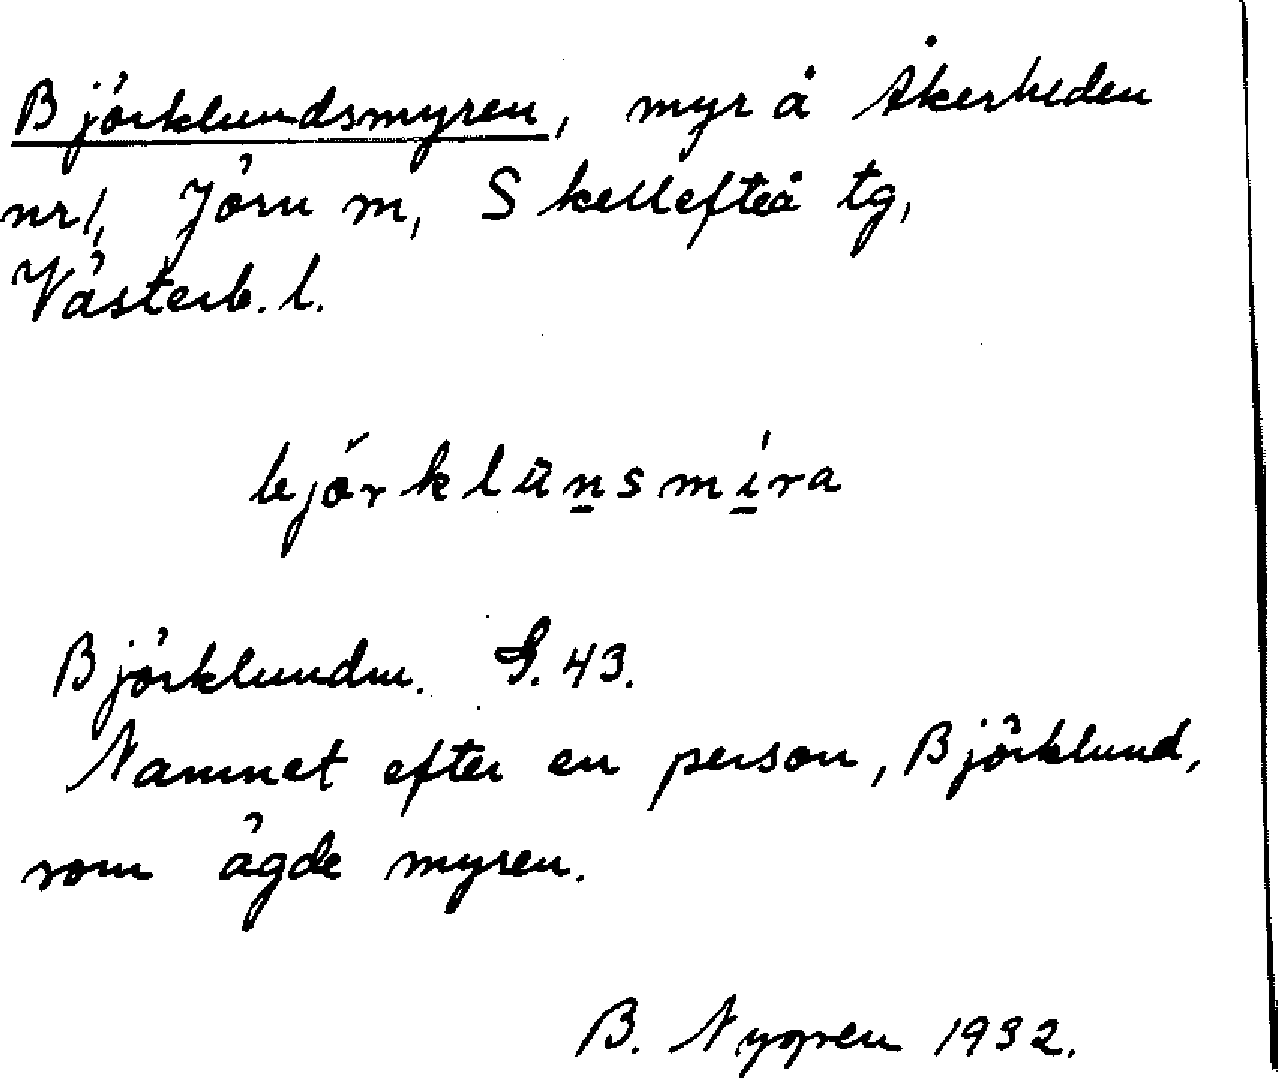 Björklundsmyren, myr å Åkerheden
nr 1, Jörn m, Skellefteå tg,
Västerb. l.
bjö́rklūn̲smi̲̍ra
Björklundm. G. 43.
Namnet efter en person, Björklund,
som ägde myren.
B. Nygren 1932.